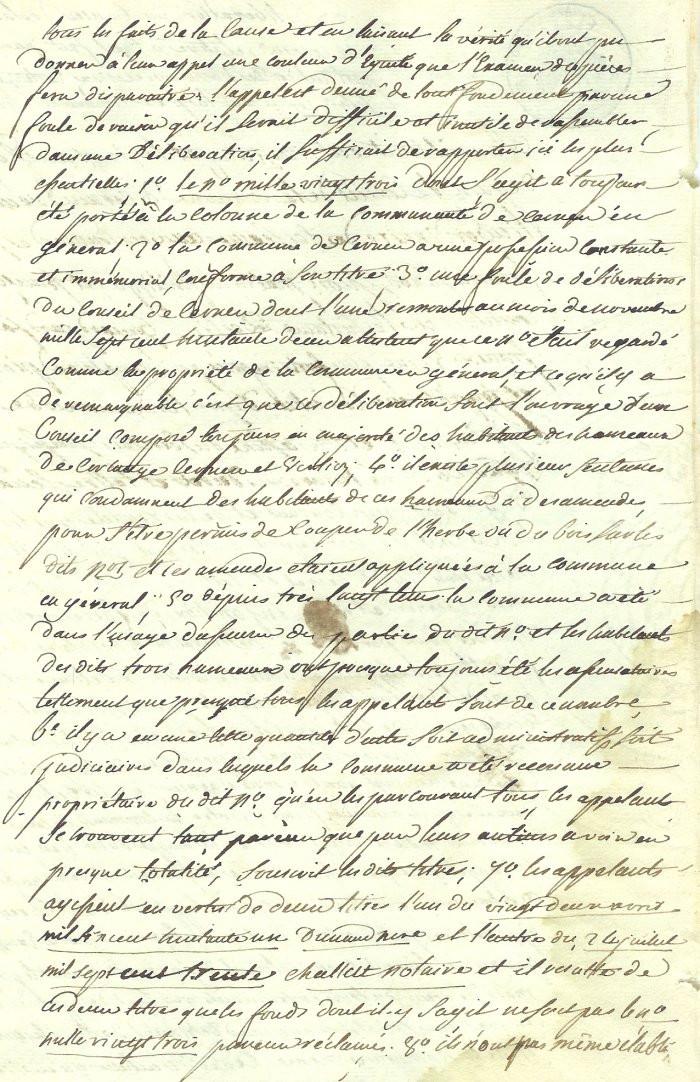 tous les faits de la Cause et en taisant la vérité qu'ils ont pu
donner à leur appel une couleur d'Equité que l'Examen des pièces
fera disparaitre. l'appel est denué de tout fondement par une
foule de raison qu'il serait difficile et inutile de rassembler
dans une Déliberation, il suffirait de rapporter ici les plus
essentielles. 1º. le nº mille vingt trois dont s'agit a toujours
été porté à la Colonne de la Communauté de Cernex en
général. 2º la Commune de Cernex a une possession Constante
et immémorial Conforme à son titre. 3º. une foule de déliberations
du Conseil de Cernex dont l'une remonte au mois de novembre
mille sept cent trentate deux attestent que ce nº était regardé
Comme la propriété de la Commune en général, et ce qu'il y a
de remarquable c'est que ces déliberation sont l'ouvrage d'un
Conseil Composé toujours en majorité des habitant des hameaux
de Cortinge Cernex et Verlioz, 4º. il existe plusieur sentences
qui Condamnent des habitants de ces hameaux à des amendes
pour s'être permis de Couper de l'herbe ou du bois sur les
dits nos et les amendes etaient appliquées à la Commune
en géveral. 5º depuis très longtems la Commune a été
dans l'usage d'assencer des partie du dit nº. et les habitants
des dits trois hameaux ont presque toujours été les assensataires
tellement que presque tous les appelants sont de ce nombre,
6º. il y a eu une telle quantité d'actes soit administratifs soit
judiciaires dans lesquels la Commune a été reconnue
propriétaire du dit nº. qu'en les parcourant tous, les appelants
se trouvent tant par eux que par leurs auteurs avoir en
presque totalité, souscrit les dits titre; 7º. les appelants
agissent en vertu de deux titres l'un du vingt deux avril
mil six cent trentate un Dunand nore et l'autre du 2 juillet
mil sept cent trente challiet notaire et il resulte de
ces deux titres que les fonds dont il y s'agit ne sont pas le nº
mille vingt trois par eux réclamé. 8º. ils n'ont pas même établi